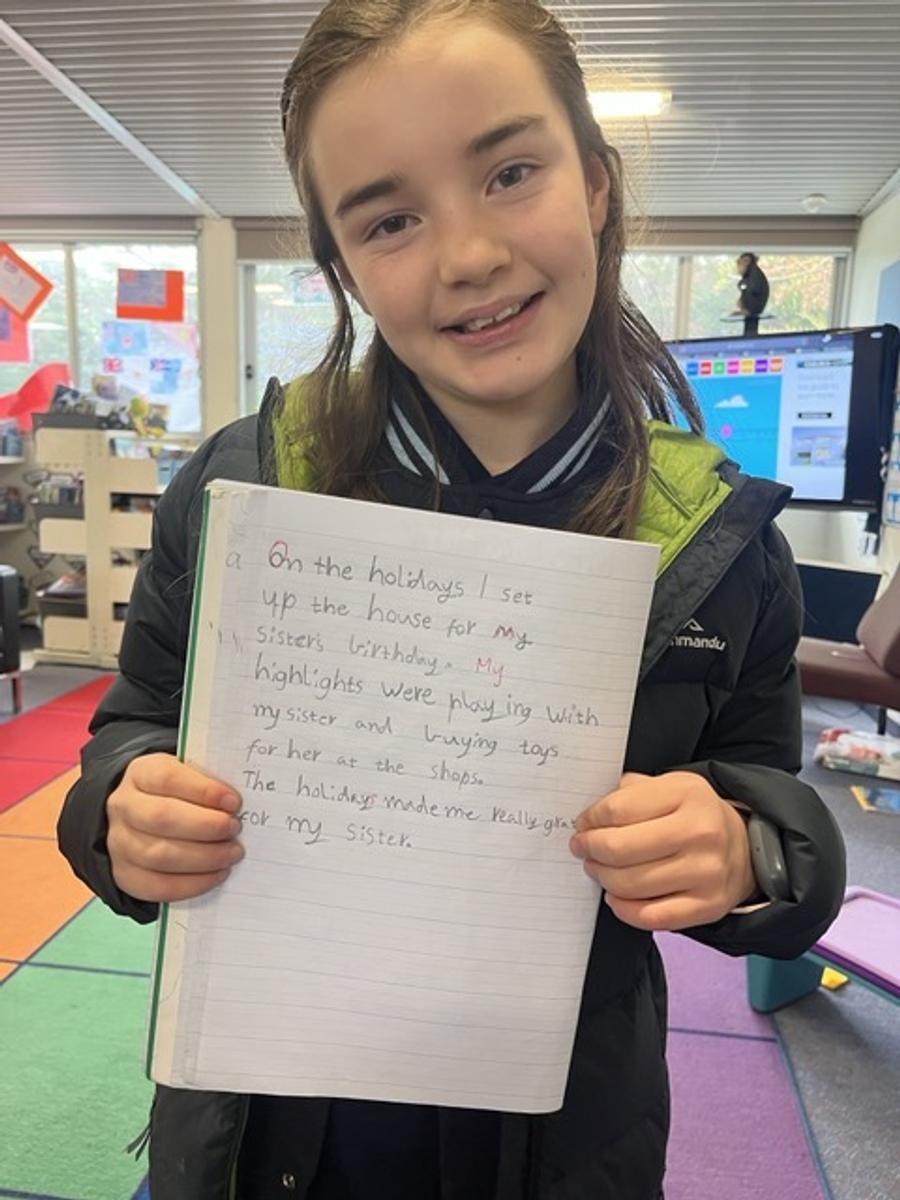 a On the holidays I set
up the house for my
sister's birthday. My
highlights were playing with
my sister and buying toys
for her at the shops.
The holidays made me really
for my sister.